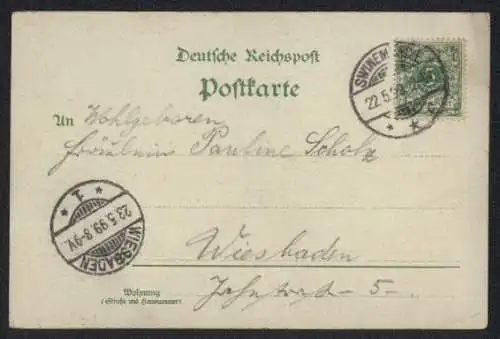 Deutsche Reichspost
Postkarte
An Wohlgeboren
Fräulein Pauline Scholz
Wiesbaden
Jahnstraß - 5 -
Wohnung
(Straße und Hausnummer)
22.5.99
* *
* 1 *
23.5.99. 8-9V.
WIESBADEN